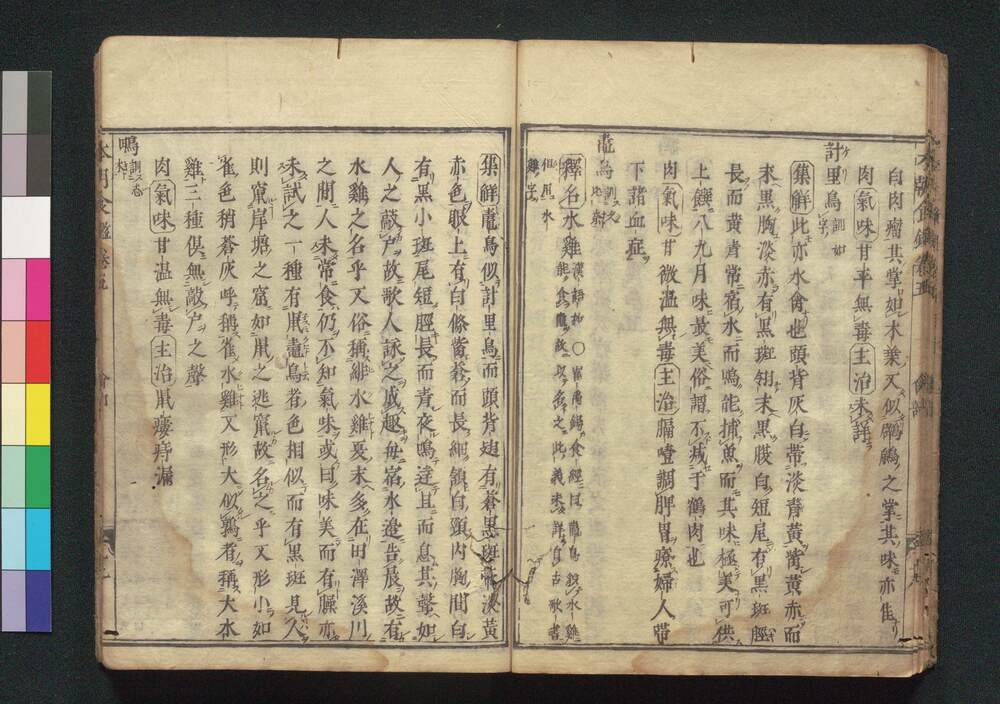 白肉瘤其掌如木葉又似鸊鷉之掌其味亦佳
肉氣味甘平無毒主治未詳
計里鳥訓如字
集解此亦水禽也頭背灰白帶淡青黄觜黄赤而
末黒胸淡赤有黒斑翎末黒腹白短尾有黒斑脛
長而黄青常宿水而鳴能捕魚而其味極美可供
上饌八九月味最美俗謂不減于鶴肉也
肉氣味甘微温無毒主治膈噎調脾胃療婦人帶
下諸血症
鼃鳥
釋名水雞
集解鼃鳥似計里鳥而頭背翅有蒼黒斑帶淡黄
赤色眼上有白條觜蒼而長細頷白頸内胸間白
有黒小斑尾短脛長而青夜鳴達旦而息其聲如
人之敲戸故歌人詠之感趣毎宿水邊告晨故有
水雞之名乎又俗稱緋水雞夏末多在田澤溪川
之間人未常食仍不知氣味或曰味美而有臊亦
未試之一種有鼠鼃鳥者色相似而有黒斑見人
則竄岸塘之窟如鼠之逃竄故名之乎又形小如
雀色稍蒼灰呼稱雀水雞又形大似鶉者稱大水
雞三種倶無敲戸之聲
肉氣味甘温無毒主治鼠瘻痔漏
鴫